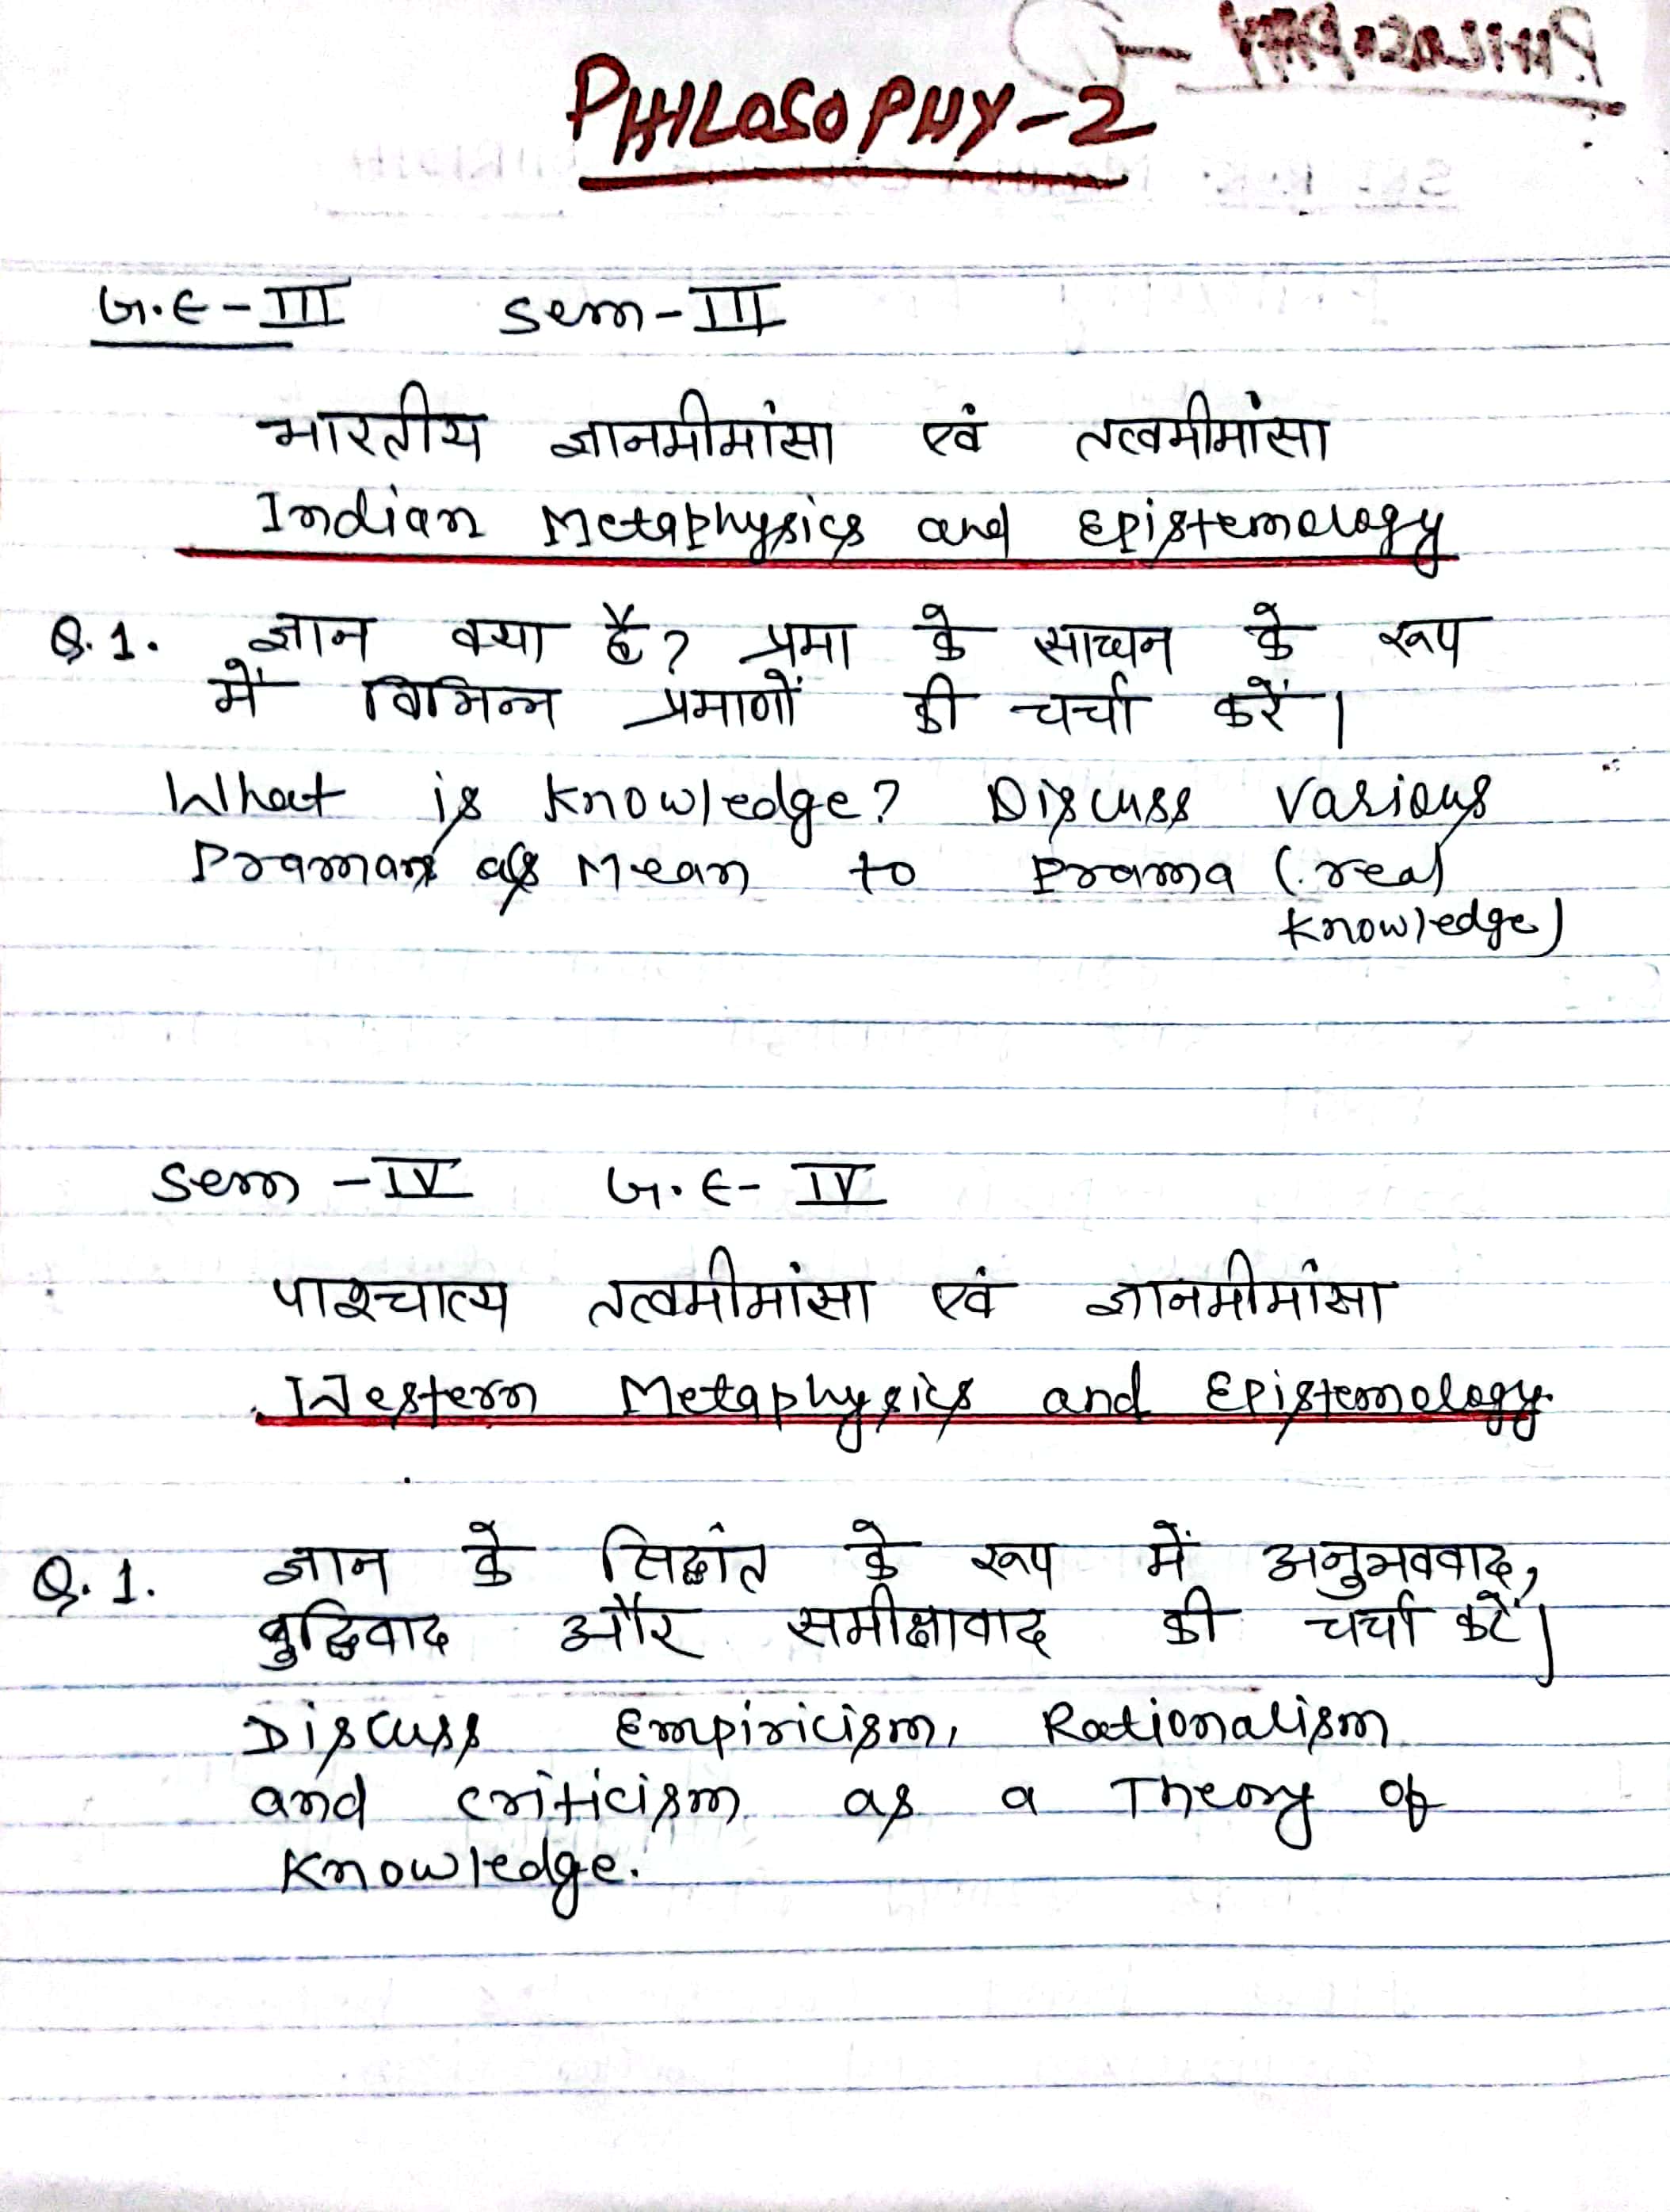 PHILOSOPHY-2
G.E-III Sem-III
भारतीय ज्ञानमीमांसा एवं तत्वमीमांसा
Indian Metaphysics and Epistemology
Q.1. ज्ञान क्या है? प्रमा के साधन के रूप
में विभिन्न प्रमाणों की चर्चा करें।
What is knowledge? Discuss various
Praman as Mean to Prama (real
knowledge)
Sem-IV G.E-IV
पाश्चात्य तत्वमीमांसा एवं ज्ञानमीमांसा
Western Metaphysics and Epistemology.
Q.1. ज्ञान के सिद्धांत के रूप में अनुभववाद,
बुद्धिवाद और समीक्षावाद की चर्चा करें।
Discuss Empiricism, Rationalism
and criticism as a Theory of
Knowledge.